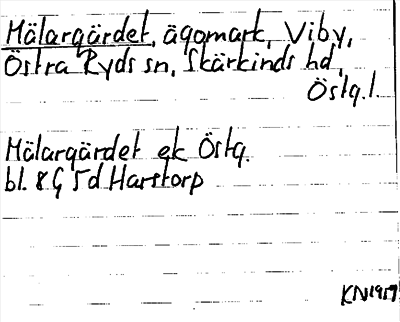 Mälargärdet, ägomark, Viby,
Östra Ryds sn, Skärkinds hd,
Östg.l.
Mälargärdet ek Östg.
bl. 8G 5d Harstorp
KN1957